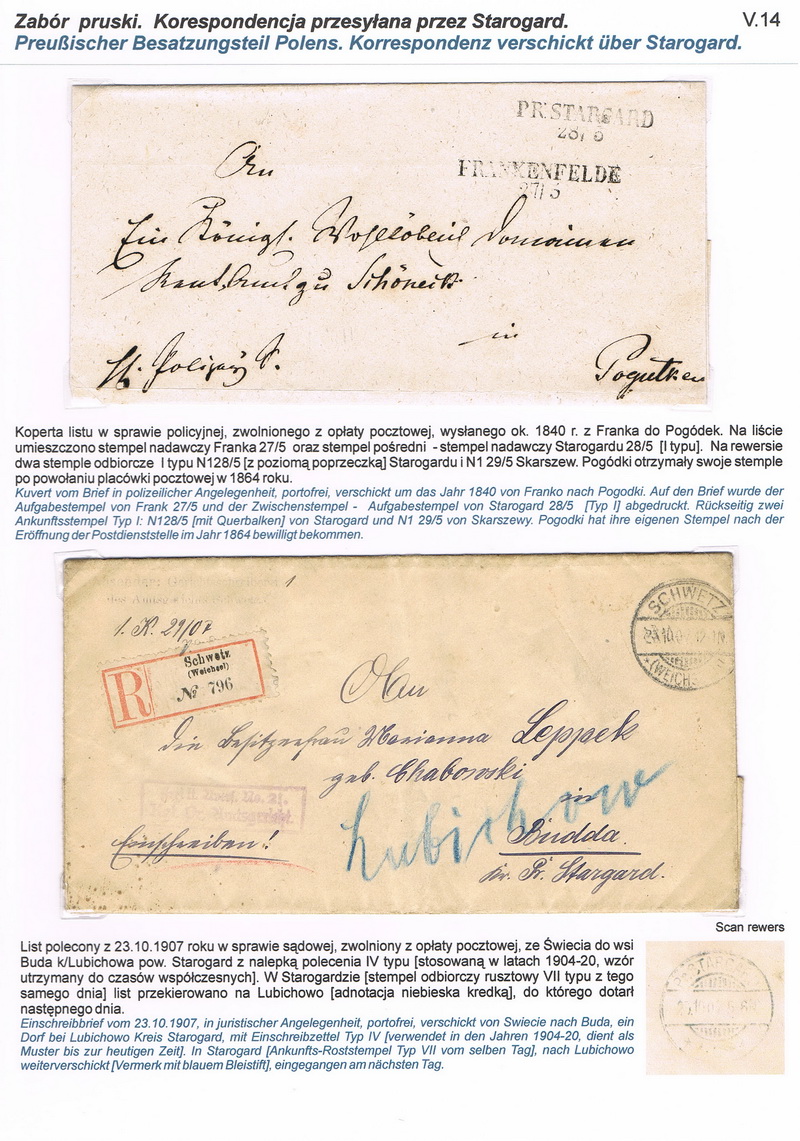 Zabór pruski. Korespondencja przesyłana przez Starogard.
V.14
Preußischer Besatzungsteil Polens. Korrespondenz verschickt über Starogard.
PR:STARGARD
28/5
FRANKENFELDE
27/5
An
Ein Königl. Wohllöbl. Domainen
Rent Amt zu Schöneck
in
Pogutken
Koperta listu w sprawie policyjnej, zwolnionego z opłaty pocztowej, wysłanego ok. 1840 r. z Franka do Pogódek. Na liście
umieszczono stempel nadawczy Franka 27/5 oraz stempel pośredni - stempel nadawczy Starogardu 28/5 [I typu]. Na rewersie
dwa stemple odbiorcze I typu N128/5 [z poziomą poprzeczką] Starogardu i N1 29/5 Skarszew. Pogódki otrzymały swoje stemple
po powołaniu placówki pocztowej w 1864 roku.
Kuvert vom Brief in polizeilicher Angelegenheit, portofrei, verschickt um das Jahr 1840 von Franko nach Pogodki. Auf den Brief wurde der
Aufgabestempel von Frank 27/5 und der Zwischenstempel - Aufgabestempel von Starogard 28/5 [Typ I] abgedruckt. Rückseitig zwei
Ankunftsstempel Typ I: N128/5 [mit Querbalken] von Starogard und N1 29/5 von Skarszewy. Pogodki hat ihre eigenen Stempel nach der
Eröffnung der Postdienststelle im Jahr 1864 bewilligt bekommen.
1
1. K. 29/07
R
Schwetz
(Weichsel)
№ 796
SCHWETZ
An
die Besitzerfrau Marianna Leppek
geb. Chabowski
in
Lubichow
Einschreiben!
Budda.
Kr. Pr. Stargard.
Scan rewers
List polecony z 23.10.1907 roku w sprawie sądowej, zwolniony z opłaty pocztowej, ze Świecia do wsi
Buda k/Lubichowa pow. Starogard z nalepką polecenia IV typu [stosowaną w latach 1904-20, wzór
utrzymany do czasów współczesnych]. W Starogardzie [stempel odbiorczy rusztowy VII typu z tego
samego dnia] list przekierowano na Lubichowo [adnotacja niebieska kredką], do którego dotarł
następnego dnia.
Einschreibbrief vom 23.10.1907, in juristischer Angelegenheit, portofrei, verschickt von Swiecie nach Buda, ein
Dorf bei Lubichowo Kreis Starogard, mit Einschreibzettel Typ IV [verwendet in den Jahren 1904-20, dient als
Muster bis zur heutigen Zeit]. In Starogard [Ankunfts-Roststempel Typ VII vom selben Tag], nach Lubichowo
weiterverschickt [Vermerk mit blauem Bleistift], eingegangen am nächsten Tag.